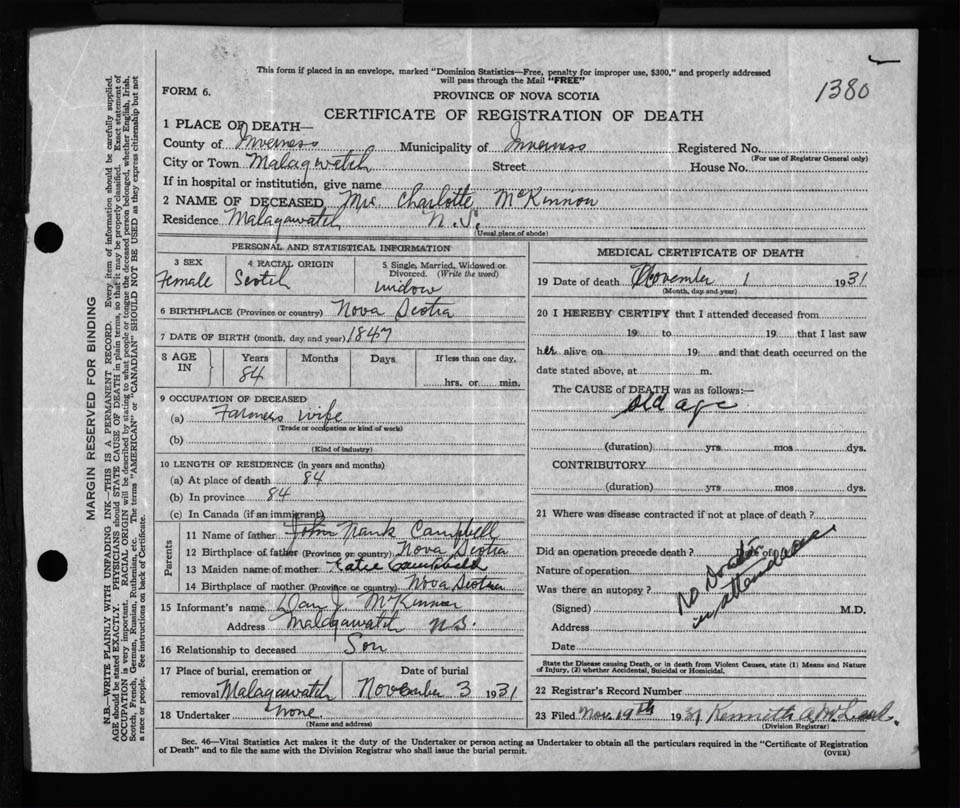 1380
This form if placed in an envelope, marked "Dominion Statistics—Free, penalty for improper use, $300," and properly addressed
will pass through the Mail "FREE"
FORM 6.
PROVINCE OF NOVA SCOTIA
CERTIFICATE OF REGISTRATION OF DEATH
1 PLACE OF DEATH—
County of Inverness Municipality of Inverness Registered No.
(For use of Registrar General only)
City or Town Malagwatch Street House No.
If in hospital or institution, give name
2 NAME OF DECEASED Mrs. Charlotte McKinnon
Residence Malagawatch N.S.
(Usual place of abode)
PERSONAL AND STATISTICAL INFORMATION
3 SEX
Female
4 RACIAL ORIGIN
Scotch
5 Single, Married, Widowed or
Divorced. (Write the word)
widow
6 BIRTHPLACE (Province or country) Nova Scotia
7 DATE OF BIRTH (month, day and year) 1847
8 AGE
IN
Years
84
Months
Days
If less than one day,
hrs. or min.
9 OCCUPATION OF DECEASED
(a) Farmers wife
(Trade or occupation or kind of work)
(b)
(Kind of industry)
10 LENGTH OF RESIDENCE (in years and months)
(a) At place of death 84
(b) In province 84
(c) In Canada (if an immigrant)
Parents
11 Name of father John Campbell
12 Birthplace of father (Province or country) Nova Scotia
13 Maiden name of mother Katie Campbell
14 Birthplace of mother (Province or country) Nova Scotia
15 Informant's name Dan J McKinnon
Address Malagawatch N.S.
16 Relationship to deceased Son
17 Place of burial, cremation or
removal Malagawatch
Date of burial
November 3 1931
18 Undertaker none
(Name and address)
MEDICAL CERTIFICATE OF DEATH
19 Date of death November 1 1931
(Month, day and year)
20 I HEREBY CERTIFY that I attended deceased from
19 to 19 that I last saw
her alive on 19 and that death occurred on the
date stated above, at m.
The CAUSE of DEATH was as follows:—
old age
(duration) yrs mos dys.
CONTRIBUTORY
(duration) yrs mos dys.
21 Where was disease contracted if not at place of death?
Did an operation precede death? Date of
Nature of operation
Was there an autopsy?
(Signed) M.D.
Address
Date
No Doctor
in attendance
State the Disease causing Death, or in death from Violent Causes, state (1) Means and Nature
of Injury, (2) whether Accidental, Suicidal or Homicidal.
22 Registrar's Record Number
23 Filed Nov. 19th 1931 Kenneth A.
(Division Registrar)
Sec. 46—Vital Statistics Act makes it the duty of the Undertaker or person acting as Undertaker to obtain all the particulars required in the "Certificate of Registration
of Death" and to file the same with the Division Registrar who shall issue the burial permit.
(OVER)
MARGIN RESERVED FOR BINDING
N.B.—WRITE PLAINLY WITH UNFADING INK—THIS IS A PERMANENT RECORD. Every item of information should be carefully supplied.
AGE should be stated EXACTLY. PHYSICIANS should STATE CAUSE OF DEATH in plain terms, so that it may be properly classified. Exact statement of
OCCUPATION is very important. RACIAL ORIGIN will be described by stating to what people or tongue the deceased person belonged, whether English, Irish,
Scotch, French, German, Russian, Ruthenian, etc. The terms "AMERICAN" or "CANADIAN" SHOULD NOT BE USED as they express citizenship but not
a race or people. See instructions on back of Certificate.